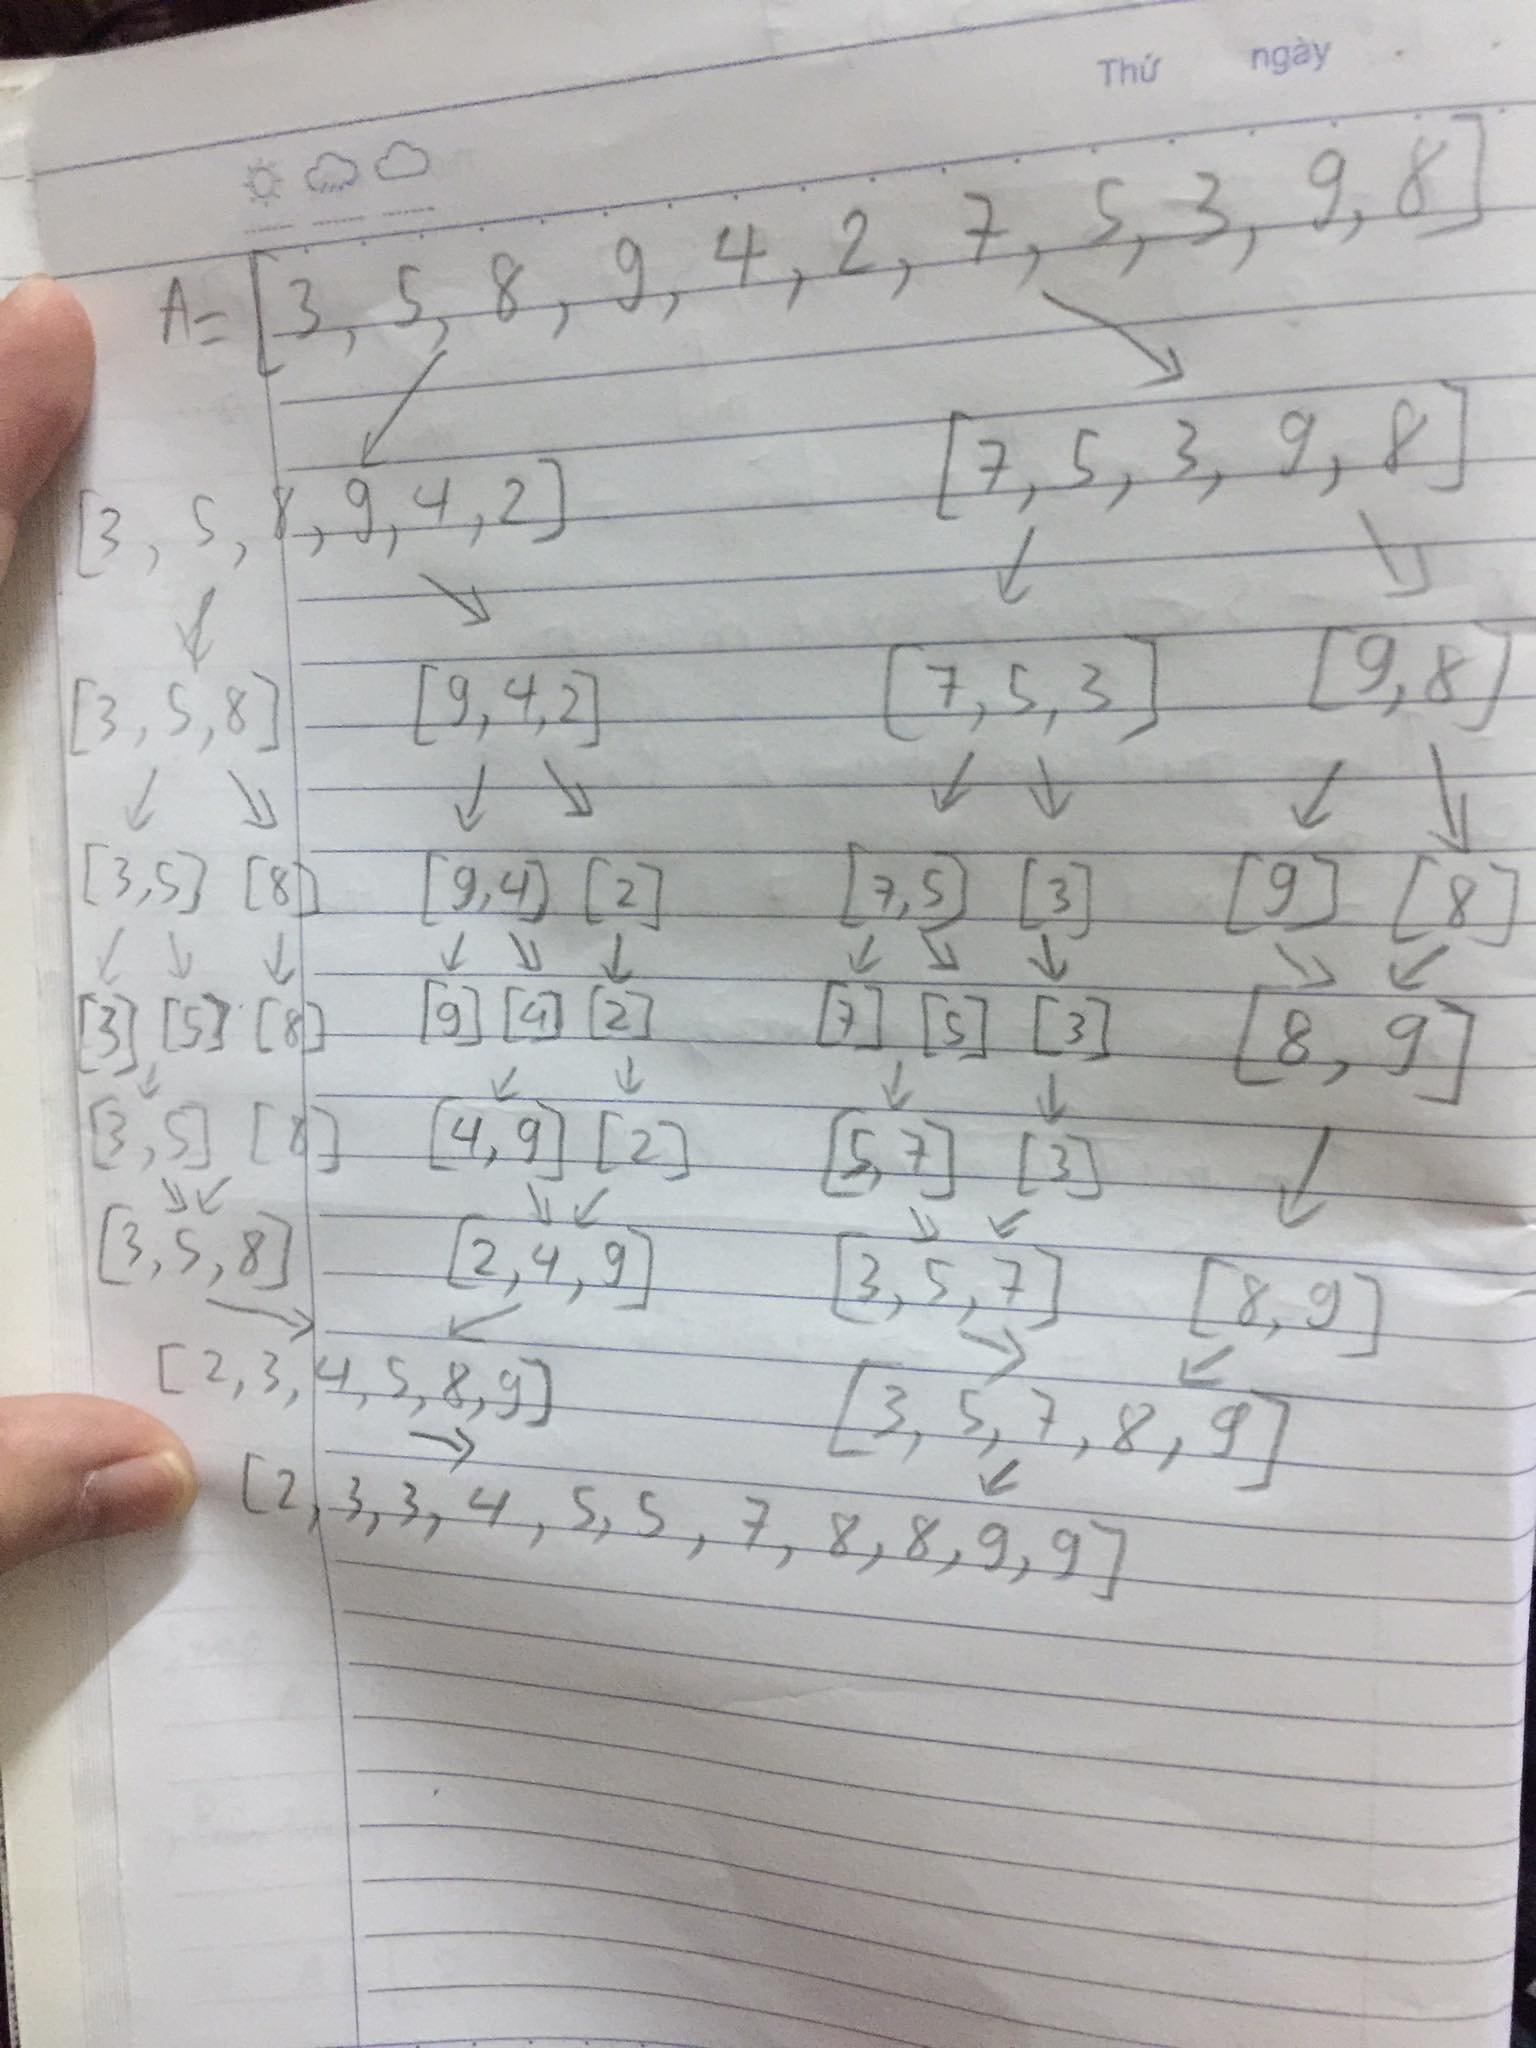 Thứ ngày
A = [3, 5, 8, 9, 4, 2, 7, 5, 3, 9, 8]
[3, 5, 8, 9, 4, 2] [7, 5, 3, 9, 8]
[3, 5, 8] [9, 4, 2] [7, 5, 3] [9, 8]
[3, 5] [8] [9, 4] [2] [7, 5] [3] [9] [8]
[3] [5] [8] [9] [4] [2] [7] [5] [3] [8, 9]
[3, 5] [8] [4, 9] [2] [5, 7] [3]
[3, 5, 8] [2, 4, 9] [3, 5, 7] [8, 9]
[2, 3, 4, 5, 8, 9] [3, 5, 7, 8, 9]
[2, 3, 3, 4, 5, 5, 7, 8, 8, 9, 9]